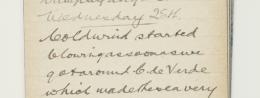 Wednesday 25th.
Cold wind started
blowing as soon as we
got around C. de Verde
which made the sea very